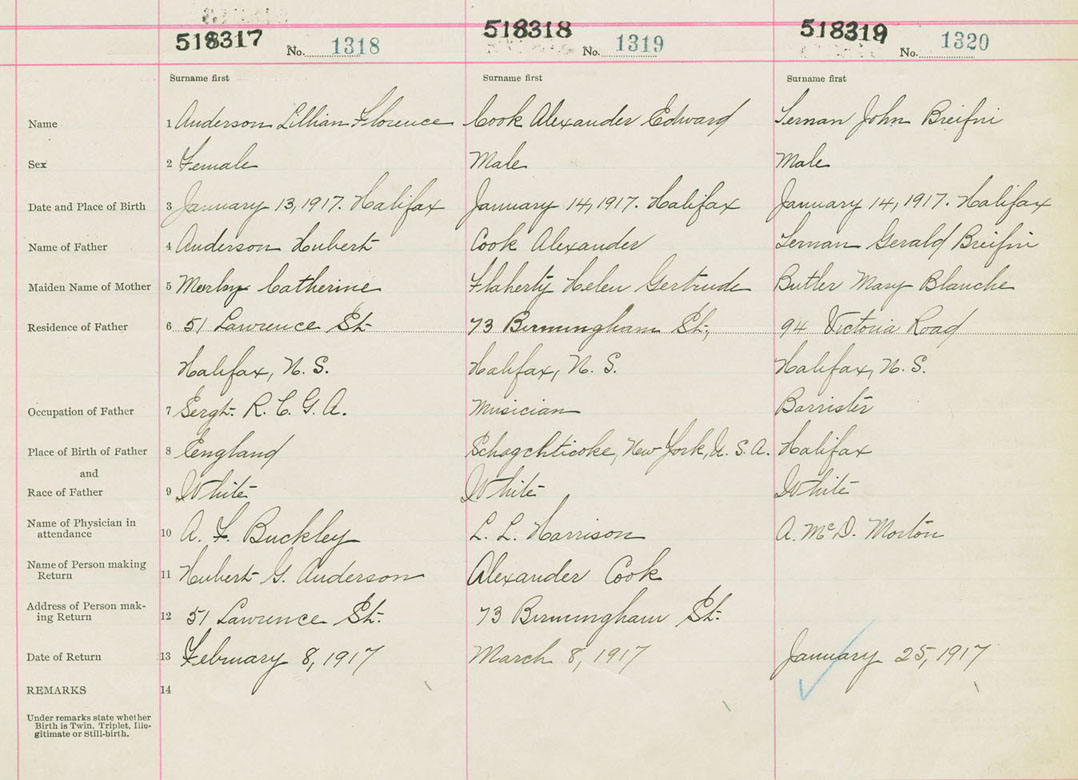 518317 No. 1318 518318 No. 1319 518319 No. 1320
Surname first Surname first Surname first
Name 1 Anderson Lillian Florence Cook Alexander Edward Ternan John Breifni
Sex 2 Female Male Male
Date and Place of Birth 3 January 13, 1917. Halifax January 14, 1917. Halifax January 14, 1917. Halifax
Name of Father 4 Anderson Hubert Cook Alexander Ternan Gerald Breifni
Maiden Name of Mother 5 Catherine Flaherty Helen Gertrude Butler Mary Blanche
Residence of Father 6 51 Lawrence St. 73 Birmingham St., 94 Victoria Road
Halifax, N. S. Halifax, N. S. Halifax, N. S.
Occupation of Father 7 Sergt. R. C. G. A. Musician Barrister
Place of Birth of Father 8 England Schagchticoke, New York, U. S. A. Halifax
and
Race of Father 9 White White White
Name of Physician in
attendance 10 A. F. Buckley L. L. Harrison A. McD. Morton
Name of Person making
Return 11 Hubert G. Anderson Alexander Cook
Address of Person mak-
ing Return 12 51 Lawrence St. 73 Birmingham St.
Date of Return 13 February 8, 1917 March 8, 1917 January 25, 1917
REMARKS 14
Under remarks state whether
Birth is Twin, Triplet, Ille-
gitimate or Still-birth.